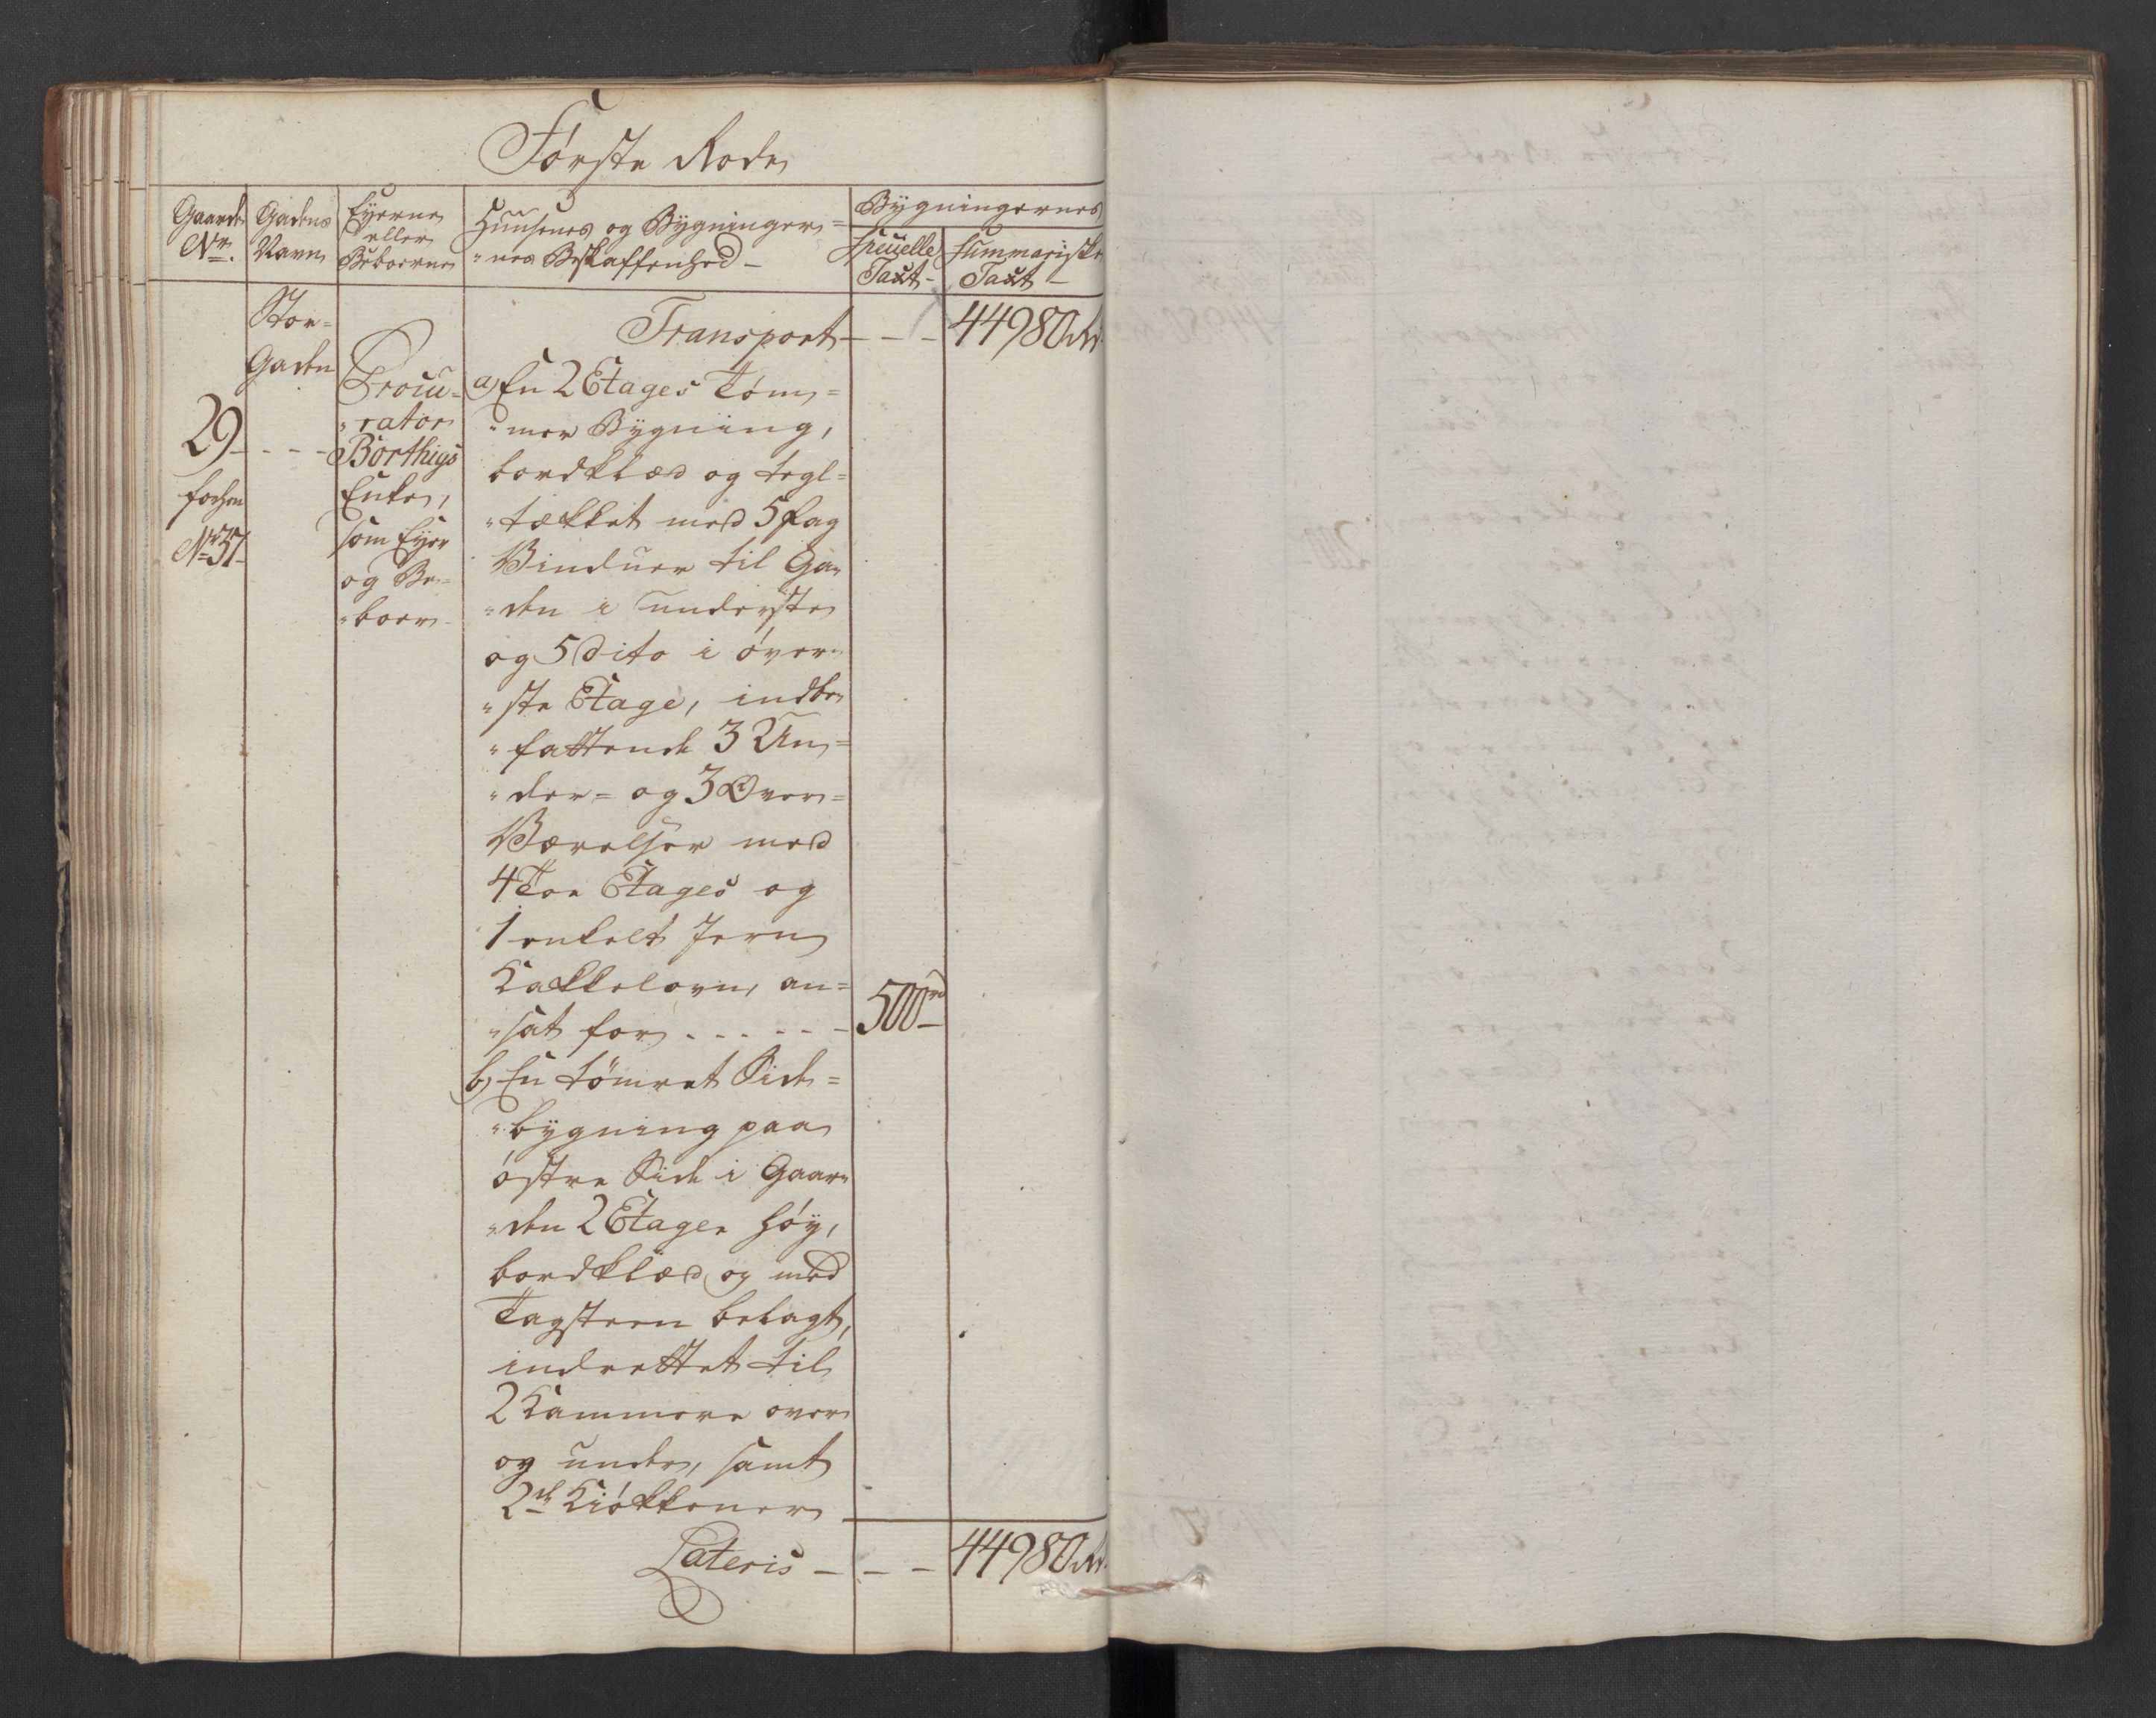 Første Rode
Gaarde
No.
Gadens
Navn
Eyerne
eller
Beboerne
Huusenes og Bygninger=
"nes Beskaffenhed -
Bygningernes
specielle
Taxt -
summariske
Taxt -
Stor=
Gaden
Transport - - - 44980
29 - - - -
forhen
No 37
Procu-
"rator
Borthigs
Enke,
som Eyer
og Be=
"boer -
a, En 2 Etages Töm=
"mer Bygning,
bordklæd og tegl=
"tækket med 5 Fag
Vinduer til Ga=
"den i underste
og 5 Dito i över=
"ste Etage, indbe=
"fattende 3 Un=
"der= og 3 Over=
Værelser med
4 Toe Etages og
1 enkelt Jern
Kakkelovn, an=
"sat for - - - - - 500 rd
b, En tömret Side=
"bygning paa
östre Side i Gaar=
"den 2 Etager höy,
bordklæd og med
Tagsteen belagt,
indrettet til
2 Kammere over
og under, samt
2de Kiökkener
Lateris - - - 44980